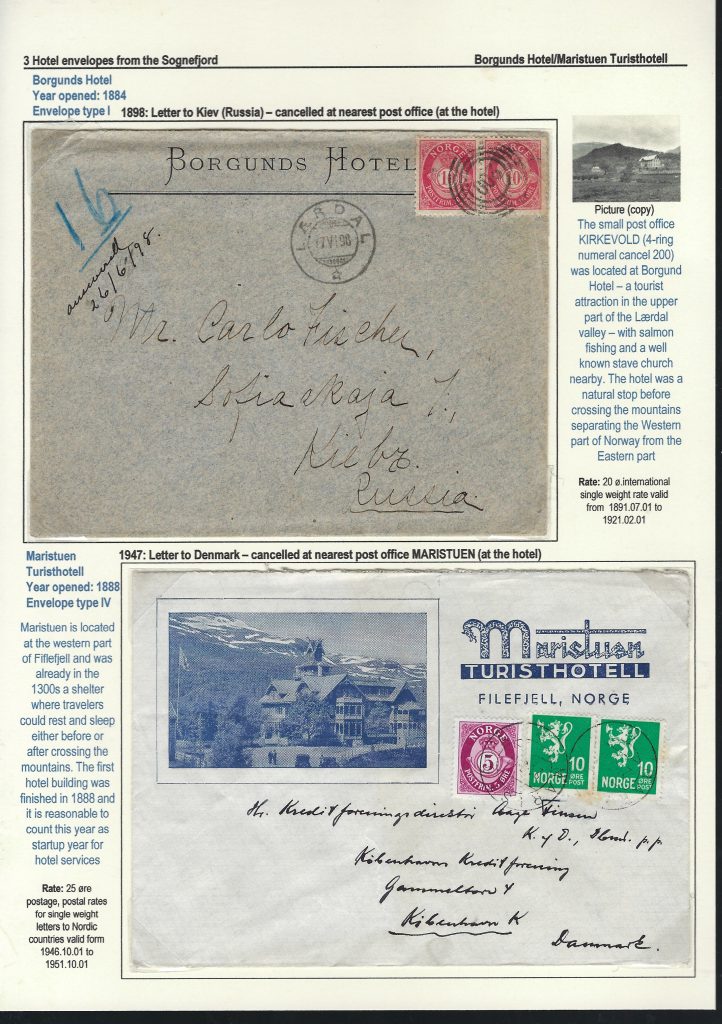 3 Hotel envelopes from the Sognefjord
Borgunds Hotel/Maristuen Turisthotell
Borgunds Hotel
Year opened: 1884
Envelope type I
1898: Letter to Kiev (Russia) – cancelled at nearest post office (at the hotel)
BORGUNDS HOTEL
NORGE
10
10
LÆRDAL
17 VI 98
16
answered
26/6/98.
Mr. Carlo Fischer,
Sofiaskaja 7.,
Kiebz.
Russia.
Picture (copy)
The small post office
KIRKEVOLD (4-ring
numeral cancel 200)
was located at Borgund
Hotel – a tourist
attraction in the upper
part of the Lærdal
valley – with salmon
fishing and a well
known stave church
nearby. The hotel was a
natural stop before
crossing the mountains
separating the Western
part of Norway from the
Eastern part
Rate: 20 ø.international
single weight rate valid
from 1891.07.01 to
1921.02.01
Maristuen
Turisthotell
Year opened: 1888
Envelope type IV
1947: Letter to Denmark – cancelled at nearest post office MARISTUEN (at the hotel)
Maristuen is located
at the western part
of Fiflefjell and was
already in the
1300s a shelter
where travelers
could rest and sleep
either before or
after crossing the
mountains. The first
hotel building was
finished in 1888 and
it is reasonable to
count this year as
startup year for
hotel services
Rate: 25 øre
postage, postal rates
for single weight
letters to Nordic
countries valid form
1946.10.01 to
1951.10.01
Maristuen
TURISTHOTELL
FILEFJELL, NORGE
NORGE
5
POSTFRIM. 5 ØRE
NORGE 10 ØRE POST
NORGE 10 ØRE POST
Hr. Kreditforeningsdirektör Aage
K. af D., p.p.
Københavns Kreditforening
Gammeltorv 4
København K
Danmark.